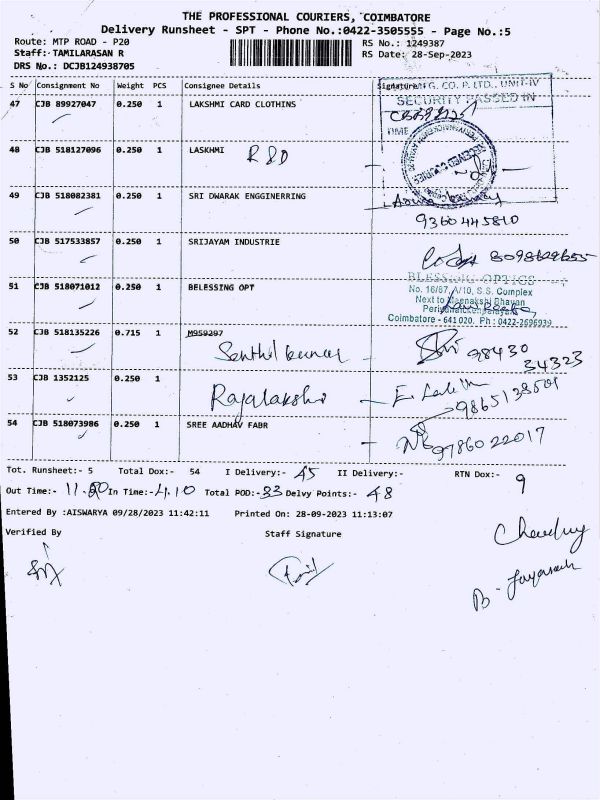 THE PROFESSIONAL COURIERS, COIMBATORE
Delivery Runsheet - SPT - Phone No.:0422-3505555 - Page No.:5
Route: MTP ROAD - P20
RS No.: 1249387
Staff: TAMILARASAN R
RS Date: 28-Sep-2023
DRS No.: DCJB124938705
S No Consignment No Weight PCS Consignee Details Signature
G. CO. P. LTD., UNIT-IV
SECURITY PASSED IN
47 CJB 89927047 0.250 1 LAKSHMI CARD CLOTHINS
TIME
48 CJB 518127096 0.250 1 LASKHMI R&D
49 CJB 518082381 0.250 1 SRI DWARAK ENGGINERRING
9360445810
50 CJB 517533857 0.250 1 SRIJAYAM INDUSTRIE
BLESSING OPTICS
51 CJB 518071012 0.250 1 BELESSING OPT
No. 16/87, A/10, S.S. Complex
Next to Meenakshi Bhavan
Coimbatore - 641 020. Ph : 0422-2696939
52 CJB 518135226 0.715 1 M959297
Senthil kumar 98430
34323
53 CJB 1352125 0.250 1
Rajalakshi
54 CJB 518073986 0.250 1 SREE AADHAV FABR
9786022017
Tot. Runsheet:- 5 Total Dox:- 54 I Delivery:- 45 II Delivery:- RTN Dox:- 9
Out Time:- In Time:- 4.10 Total POD:- 33 Delvy Points:- 48
Entered By :AISWARYA 09/28/2023 11:42:11 Printed On: 28-09-2023 11:13:07
Verified By Staff Signature